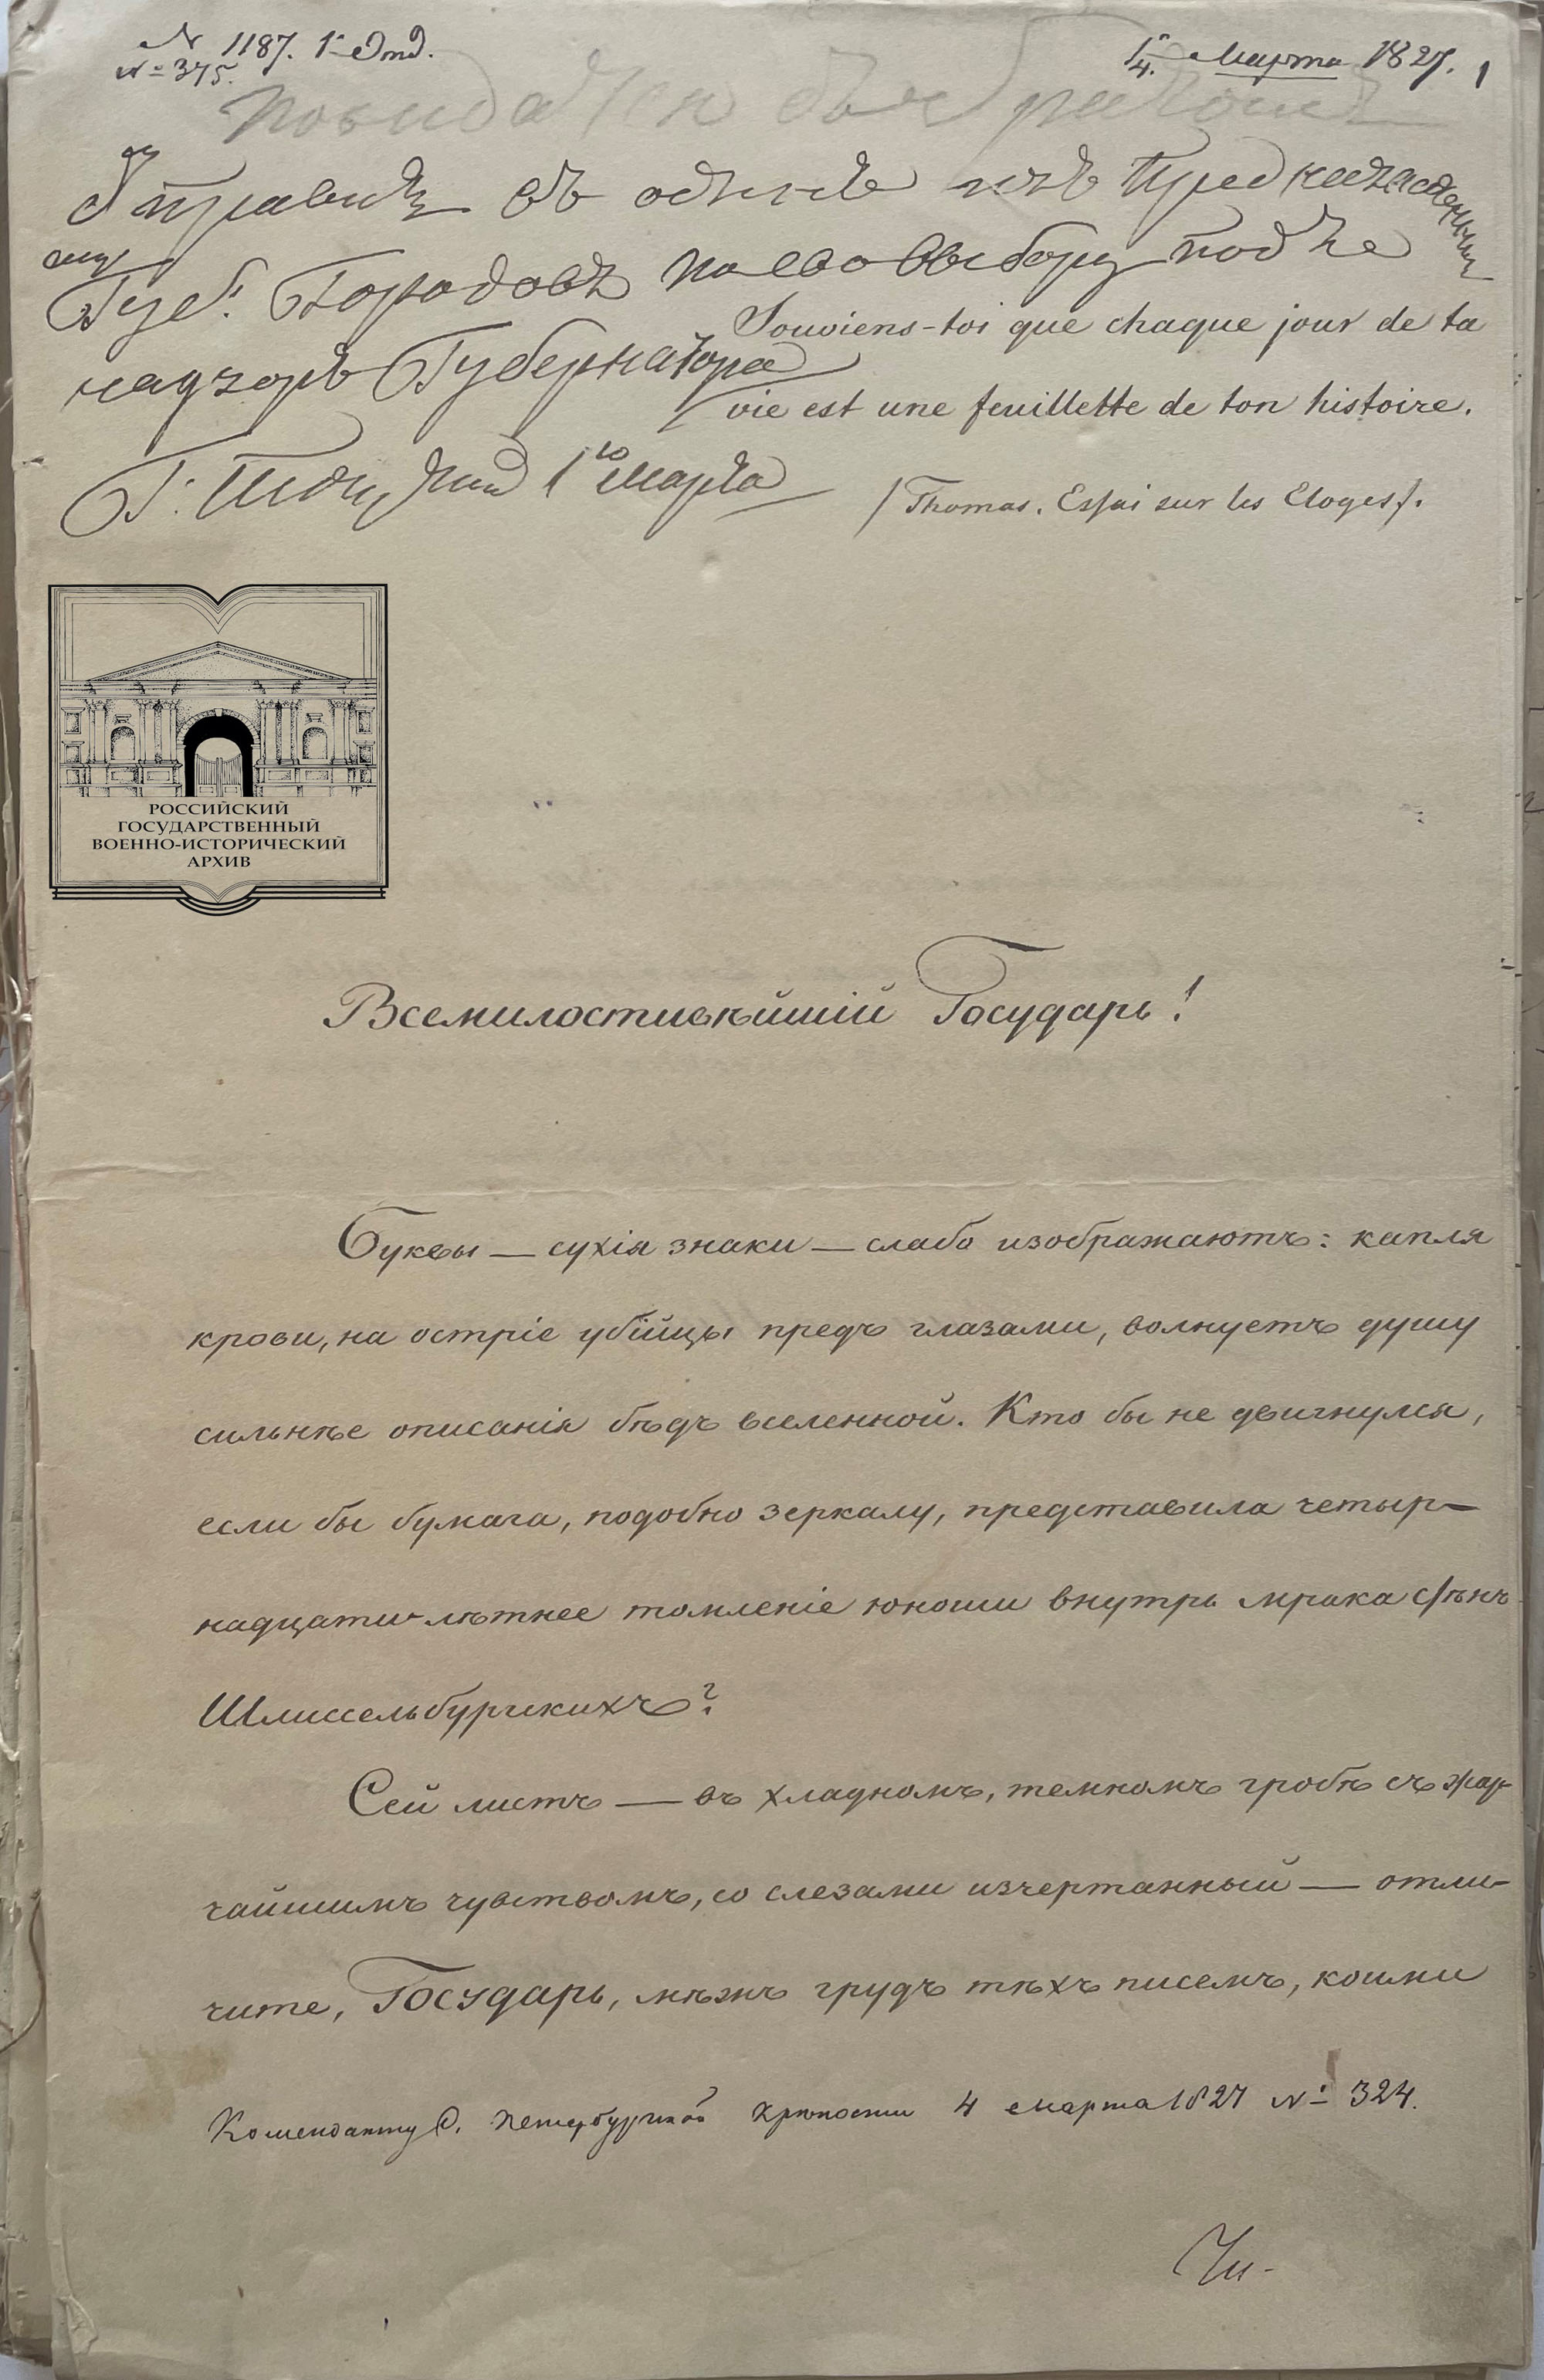 № 1187. 1е Отд.
№ 375.
4. Марта 1827. 1
Отправить въ одинъ изъ предназначенныхъ
ему
Губ. Городовъ по его выбору подъ
надзоръ Губернатора
1го Марта
Souviens-toi que chaque jour de ta
vie est une feuillette de ton histoire.
/Thomas. Essai sur les Eloges/.
РОССИЙСКИЙ
ГОСУДАРСТВЕННЫЙ
ВОЕННО-ИСТОРИЧЕСКИЙ
АРХИВ
Всемилостивѣйшій Государь!
Буквы — сухія знаки — слабо изображаютъ: капля
крови, на остріе убійцы предъ глазами, волнуетъ душу
сильнѣе описанія бѣдъ вселенной. Кто бы не двигнулся,
если бы бумага, подобно зеркалу, представила четыр-
надцати-лѣтнее томленіе юноши внутрь мрака стѣнъ
Шлиссельбургскихъ?
Сей листъ — въ хладномъ, темномъ гробѣ съ жар-
чайшимъ чувствомъ, со слезами изчертанный — отли-
чите, Государь, мѣжъ грудъ тѣхъ писемъ, коими
Коменданту С. Петербургской крѣпости 4 марта 1827 № 324.